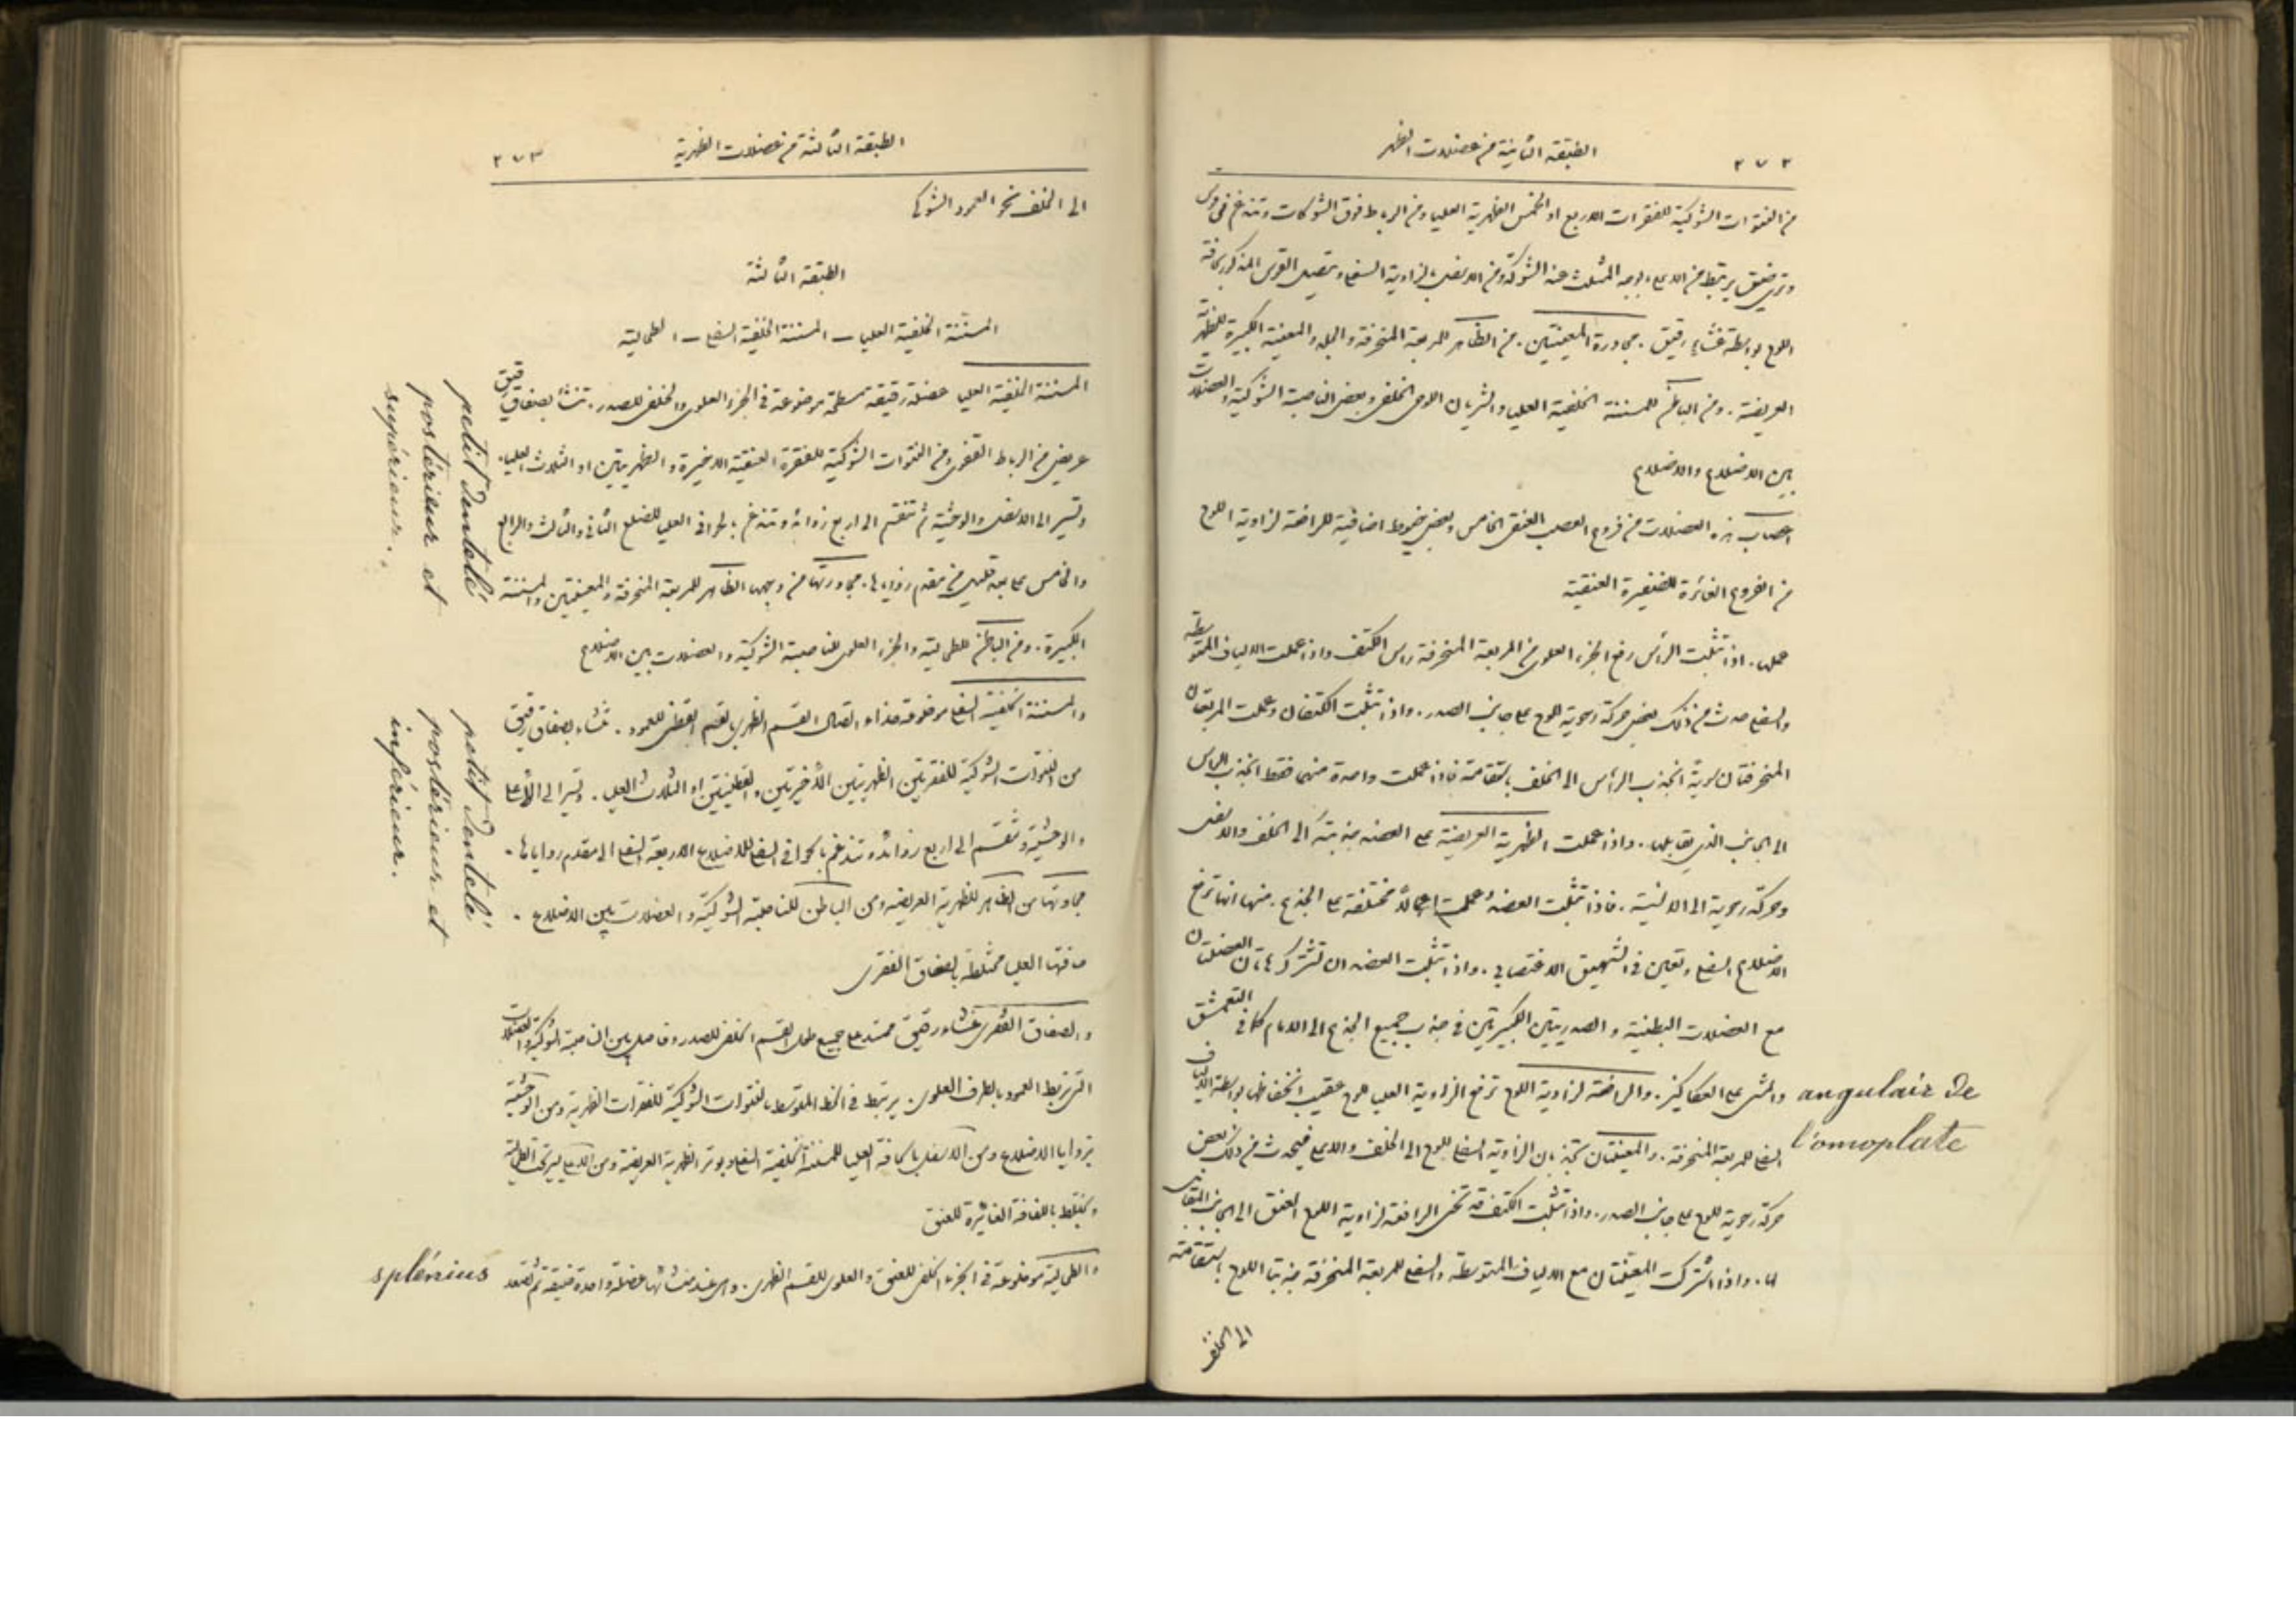 ٢٧٢
الطبقة الثانية من عضلات الظهر
من النتوات الشوكية للفقرات الاربع او الخمس الظهرية العليا ومن الرباط فوق الشوكات وتندغم في قوس
وتري ضيق يرتبط من الاعلى بوجه المثلث عند الشوكة ومن الاسفل بزاوية السفلى ويتصل القوس المذكور بحافة
اللوح بواسطة غشاء رقيق. مجاورة المعينتين. من الظاهر للمربعة المنحرفة والجلد والمعينة الكبيرة للظهرية
العريضة. ومن الباطن للمسننة الخلفية العليا والشريان اللوحي الخلفي وبعض الناصبة الشوكية والعضلات
بين الاضلاع والاضلاع
اعصاب هذه العضلات من فروع العصب العنقي الخامس وبعض خيوط اضافية للرافعة لزاوية اللوح
من الفروع الغائرة للضفيرة العنقية
عملها. اذا تثبت الرأس رفع الجزء العلوي من المربعة المنحرفة راس الكتف واذا عملت الالياف المتوسطة
والسفلى حدث من ذلك بعض حركة رحوية للوح على جانب الصدر. واذا تثبت الكتفان وعملت المربعتان
المنحرفتان سوية انجذب الرأس الى الخلف باستقامة فاذا عملت واحدة منهما فقط انجذب الراس
الى الجانب الذي يقابلها. واذا عملت الظهرية العريضة على العضد جذبته الى الخلف والاسفل
وحركة رحوية الى الانسية. فاذا تثبت العضد عملت اعمالا مختلفة على الجذع. منها انها ترفع
الاضلاع السفلى وتعين في الشهيق الاغتصابي. واذا تثبت العضدان تشترك هاتان العضلتان
مع العضلات البطنية والصدريتين الكبيرتين في جذب جميع الجذع الى الامام كما في التعمشق
والمشي على العكاكيز. والرافعة لزاوية اللوح ترفع الزاوية العليا للوح عقيب انخفاضها بواسطة الالياف
angulair de
l'omoplate
السفلى للمربعة المنحرفة. والمعينتان تجذبان الزاوية السفلى للوح الى الخلف والاعلى فيحدث من ذلك بعض
حركة رحوية للوح على جانب الصدر. واذا تثبت الكتف قد تحني الرافعة لزاوية اللوح العنق الى الجانب المقابل
لها. واذا اشتركت المعينتان مع الالياف المتوسطة والسفلى للمربعة المنحرفة جذبتا اللوح باستقامة
الى الخلف
الطبقة الثالثة من عضلات الظهرية
٢٧٣
الى الخلف نحو العمود الشوكي
الطبقة الثالثة
المسننة الخلفية العليا – المسننة الخلفية السفلى – الطحالية
المسننة الخلفية العليا عضلة رقيقة مسطحة موضوعة في الجزء العلوي والخلفي للصدر. تنشأ بصفاق رقيق
عريض من الرباط القفوي ومن النتوات الشوكية للفقرة العنقية الاخيرة والظهريتين او الثلاث العليا.
وتسير الى الاسفل والوحشية ثم تنقسم الى اربع زوائد وتندغم بالحوافي العليا للضلع الثاني والثالث والرابع
والخامس على بعد قليل من مقدم زواياها. مجاورتها من وجهها الظاهر للمربعة المنحرفة والمعينتين والمسننة
الكبيرة. ومن الباطن للطحالية والجزء العلوي للناصبة الشوكية والعضلات بين الاضلاع
petit dentelé
postérieur et
supérieur.
والمسننة الخلفية السفلى موضوعة حذاء اتصال القسم الظهري بالقسم القطني للعمود. تنشاء بصفاق رقيق
من النتوات الشوكية للفقرتين الظهريتين الأخيرتين والقطنيتين او الثلاث العليا. وتسير الى الأعلى
والوحشية وتنقسم الى اربع زوائد وتندغم بالحوافي السفلى للاضلاع الاربعة السفلى الى مقدم زواياها.
مجاورتها من الظاهر للظهرية العريضة ومن الباطن للناصبة الشوكية والعضلات بين الاضلاع.
حافتها العليا مختلطة بالصفاق الفقري
petit dentelé
postérieur et
inférieur.
والصفاق الفقري غشاء رقيق ممتد على جميع طول القسم الخلفي للصدر وفاصل بين الناصبة الشوكية والعضلات
التي تربط العمود بالطرف العلوي. يرتبط في الخط المتوسط بالنتوات الشوكية للفقرات الظهرية ومن الوحشية
بزوايا الاضلاع ومن الاسفل بالحافة العليا للمسننة الخلفية السفلى وبوتر الظهرية العريضة ومن الاعلى يسير تحت العليا
ويختلط باللفافة الغائرة للعنق
والطحالية موضوعة في الجزء الخلفي للعنق والعلوي للقسم الظهري. وهي عند منشائها عضلة واحدة ضيقة ثم تصعد
splénius